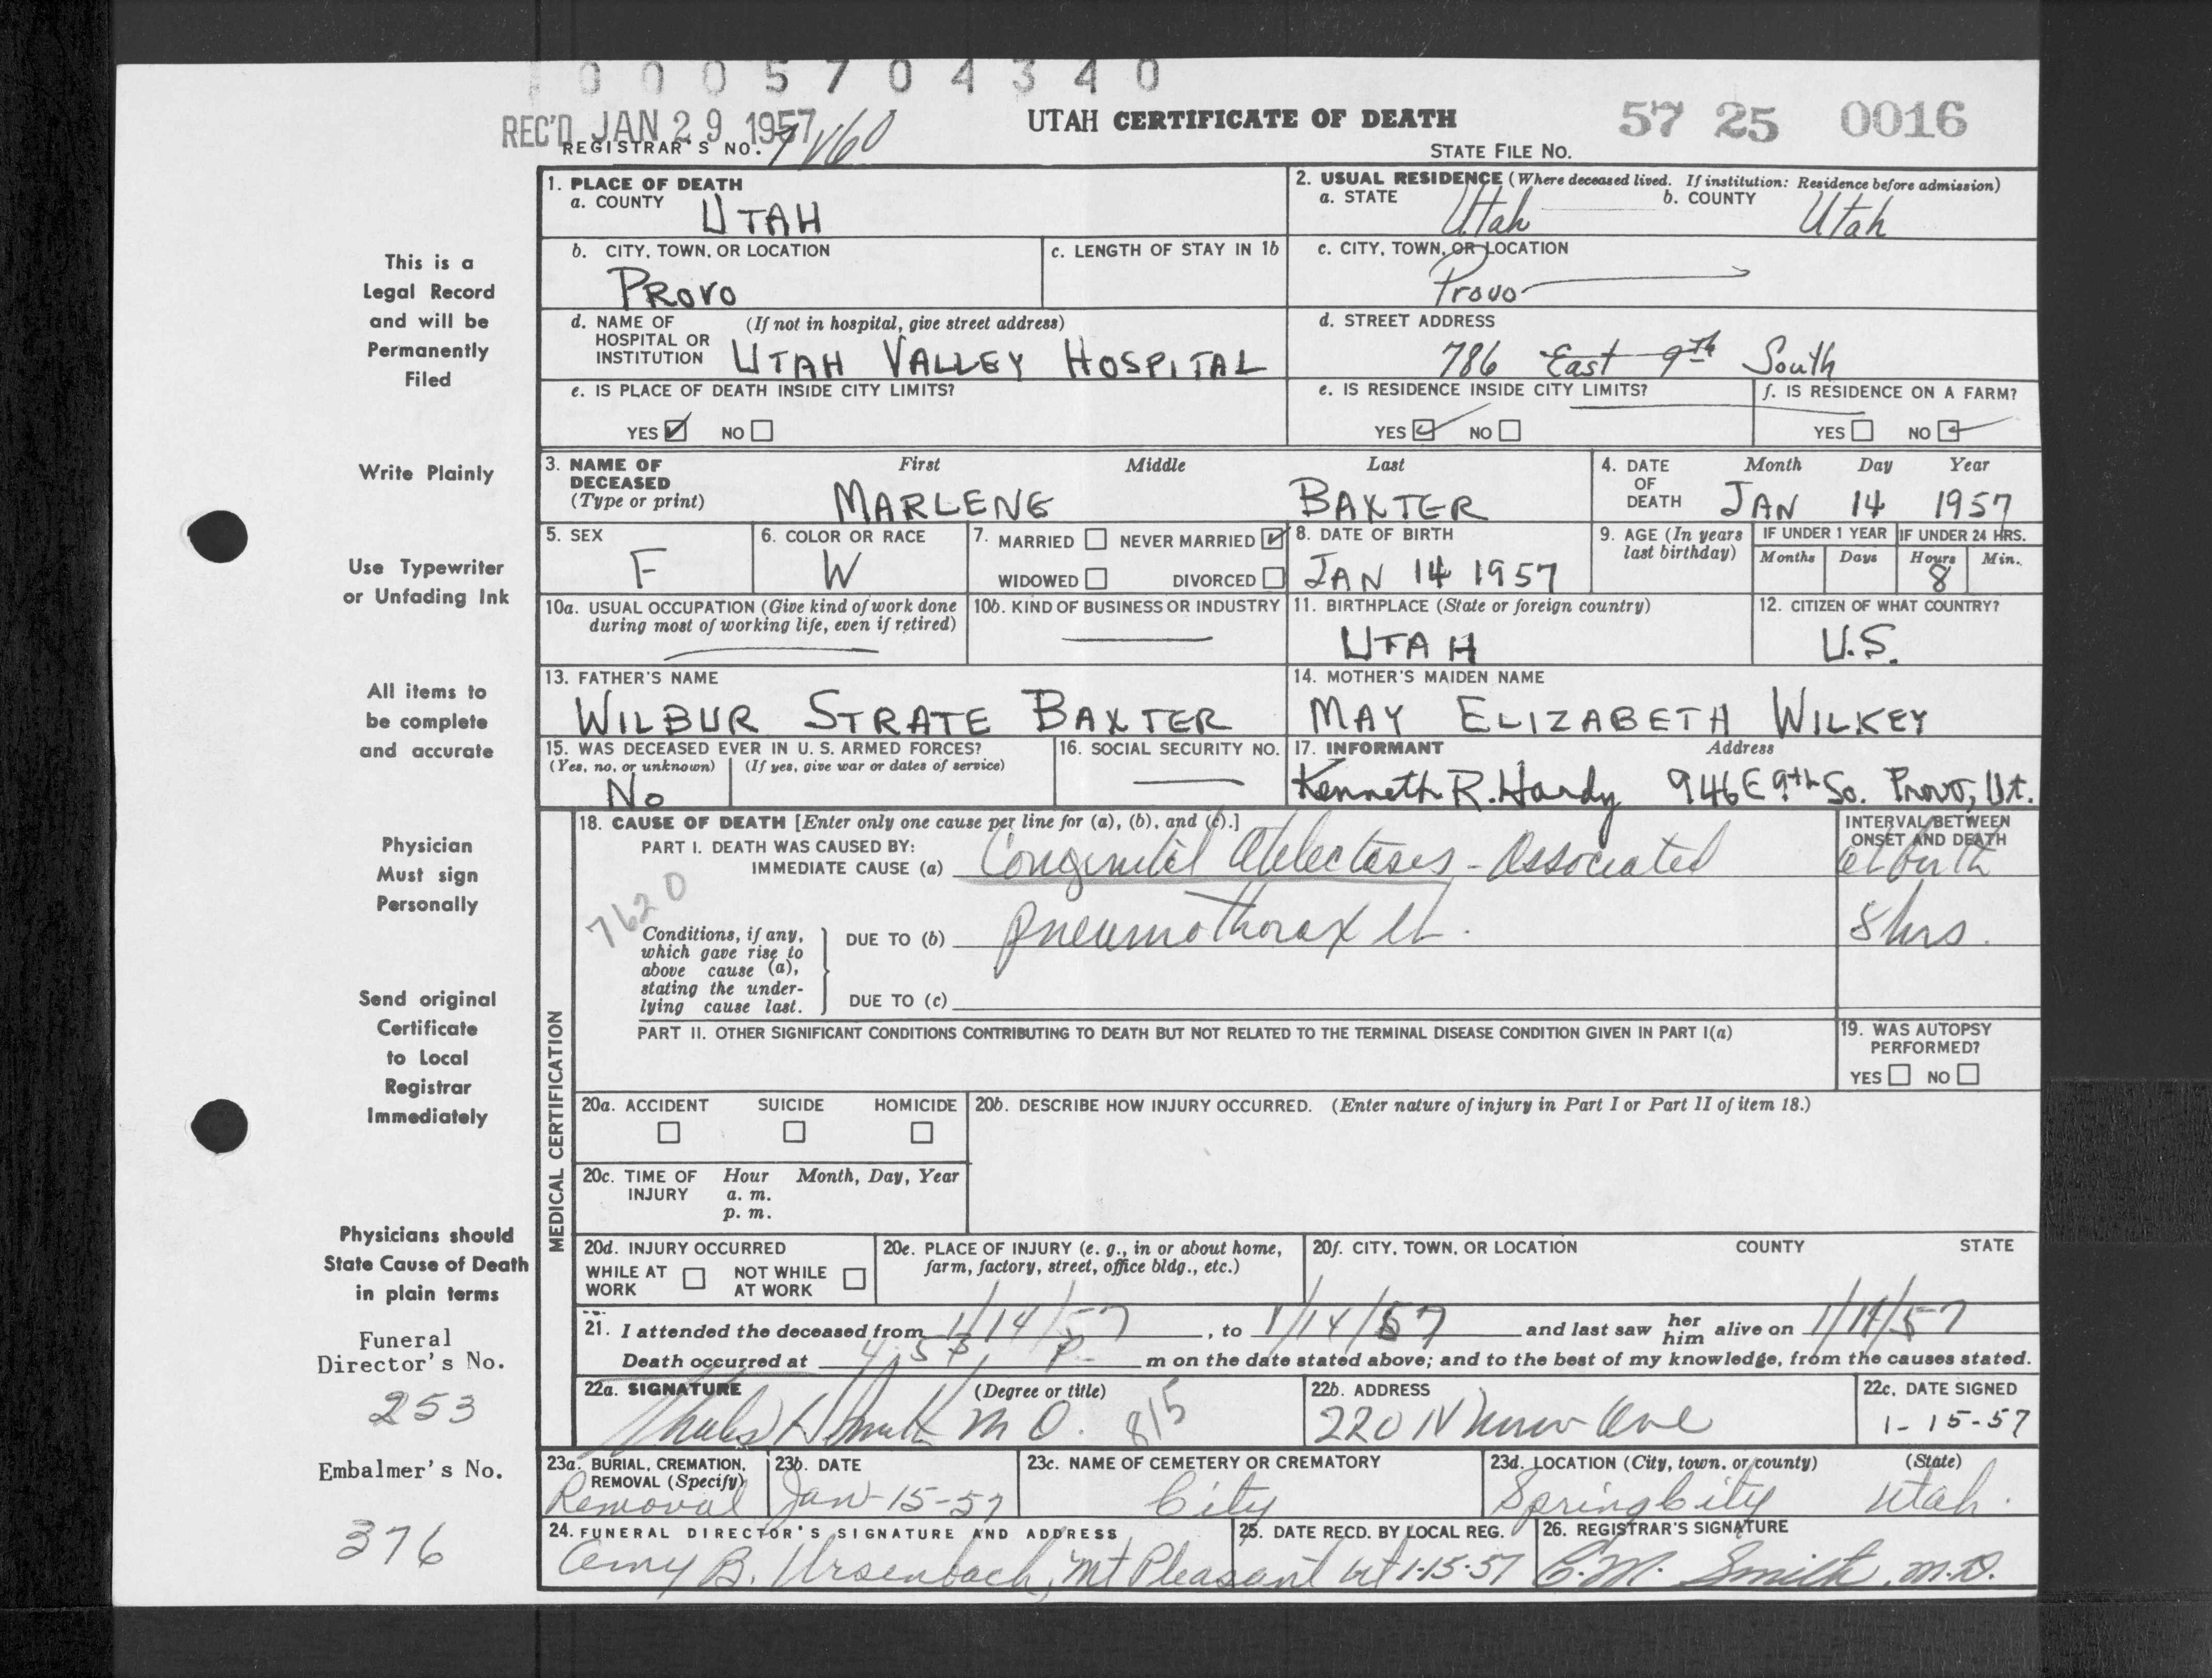 0 0 0 5 7 0 4 3 4 0
REC'D JAN 29 1957
UTAH CERTIFICATE OF DEATH
57 25 0016
REGISTRAR'S NO.
STATE FILE NO.
1. PLACE OF DEATH
a. COUNTY UTAH
2. USUAL RESIDENCE (Where deceased lived. If institution: Residence before admission)
a. STATE Utah b. COUNTY Utah
b. CITY, TOWN, OR LOCATION
PROVO
c. LENGTH OF STAY IN 1b
c. CITY, TOWN, OR LOCATION
Provo
d. NAME OF HOSPITAL OR INSTITUTION (If not in hospital, give street address)
UTAH VALLEY HOSPITAL
d. STREET ADDRESS
786 East 9th South
e. IS PLACE OF DEATH INSIDE CITY LIMITS?
YES NO
e. IS RESIDENCE INSIDE CITY LIMITS?
YES NO
f. IS RESIDENCE ON A FARM?
YES NO
3. NAME OF DECEASED (Type or print)
First Middle Last
MARLENE BAXTER
4. DATE OF DEATH
Month Day Year
JAN 14 1957
5. SEX
F
6. COLOR OR RACE
W
7. MARRIED NEVER MARRIED
WIDOWED DIVORCED
8. DATE OF BIRTH
JAN 14 1957
9. AGE (In years last birthday)
IF UNDER 1 YEAR
Months Days
IF UNDER 24 HRS.
Hours Min.
8
10a. USUAL OCCUPATION (Give kind of work done during most of working life, even if retired)
10b. KIND OF BUSINESS OR INDUSTRY
11. BIRTHPLACE (State or foreign country)
UTAH
12. CITIZEN OF WHAT COUNTRY?
U.S.
13. FATHER'S NAME
WILBUR STRATE BAXTER
14. MOTHER'S MAIDEN NAME
MAY ELIZABETH WILKEY
15. WAS DECEASED EVER IN U. S. ARMED FORCES?
(Yes, no, or unknown) (If yes, give war or dates of service)
No
16. SOCIAL SECURITY NO.
17. INFORMANT Address
Kenneth R. Hardy 946 E 9th So. Provo, Ut.
MEDICAL CERTIFICATION
18. CAUSE OF DEATH [Enter only one cause per line for (a), (b), and (c).]
INTERVAL BETWEEN ONSET AND DEATH
PART I. DEATH WAS CAUSED BY:
IMMEDIATE CAUSE (a) Congenital Atelectases - Associated
at birth
7620
Conditions, if any, which gave rise to above cause (a), stating the underlying cause last.
DUE TO (b) pneumothorax lt.
8 hrs.
DUE TO (c)
PART II. OTHER SIGNIFICANT CONDITIONS CONTRIBUTING TO DEATH BUT NOT RELATED TO THE TERMINAL DISEASE CONDITION GIVEN IN PART I(a)
19. WAS AUTOPSY PERFORMED?
YES NO
20a. ACCIDENT SUICIDE HOMICIDE
20b. DESCRIBE HOW INJURY OCCURRED. (Enter nature of injury in Part I or Part II of item 18.)
20c. TIME OF INJURY Hour Month, Day, Year
a. m.
p. m.
20d. INJURY OCCURRED
WHILE AT WORK NOT WHILE AT WORK
20e. PLACE OF INJURY (e. g., in or about home, farm, factory, street, office bldg., etc.)
20f. CITY, TOWN, OR LOCATION COUNTY STATE
21. I attended the deceased from 1/14/57, to 1/14/57 and last saw her him alive on 1/14/57
Death occurred at P m on the date stated above; and to the best of my knowledge, from the causes stated.
22a. SIGNATURE (Degree or title)
Smith M D. 815
22b. ADDRESS
220 N Ave
22c. DATE SIGNED
1-15-57
23a. BURIAL, CREMATION, REMOVAL (Specify)
Removal
23b. DATE
Jan-15-57
23c. NAME OF CEMETERY OR CREMATORY
City
23d. LOCATION (City, town, or county) (State)
Spring City Utah.
24. FUNERAL DIRECTOR'S SIGNATURE AND ADDRESS
B. Ursenbach, Mt Pleasant Ut
25. DATE RECD. BY LOCAL REG.
1-15-57
26. REGISTRAR'S SIGNATURE
C.M. Smith, M.D.
This is a
Legal Record
and will be
Permanently
Filed
Write Plainly
Use Typewriter
or Unfading Ink
All items to
be complete
and accurate
Physician
Must sign
Personally
Send original
Certificate
to Local
Registrar
Immediately
Physicians should
State Cause of Death
in plain terms
Funeral
Director's No.
253
Embalmer's No.
376